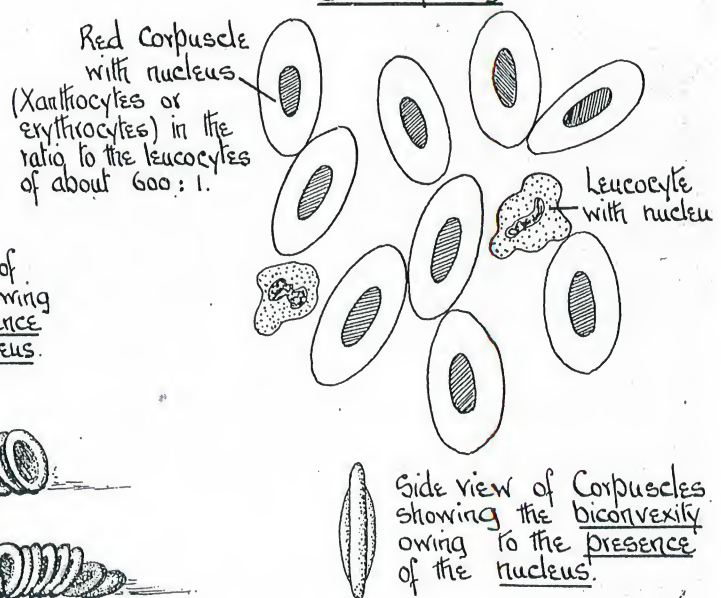 Red Corpuscle
with nucleus
(Xanthocytes or
erythrocytes) in the
ratio to the leucocytes
of about 600 : 1.
Leucocyte
with nucleu
of
wing
nce
eus.
Side view of Corpuscles
showing the biconvexity
owing to the presence
of the nucleus.